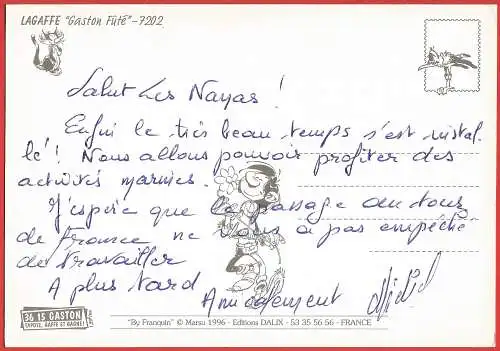 LAGAFFE "Gaston Fûté" - 7202
Salut Les Nayas !
Enfin le très beau temps s'est instal
lé ! Nous allons pouvoir profiter des
activités marines.
J'espère que le passage du tour
de France ne vous a pas empêché
de travailler
A plus tard
Amicalement
36 15 GASTON
"By Franquin" © Marsu 1996 - Editions DALIX - 53 35 56 56 - FRANCE